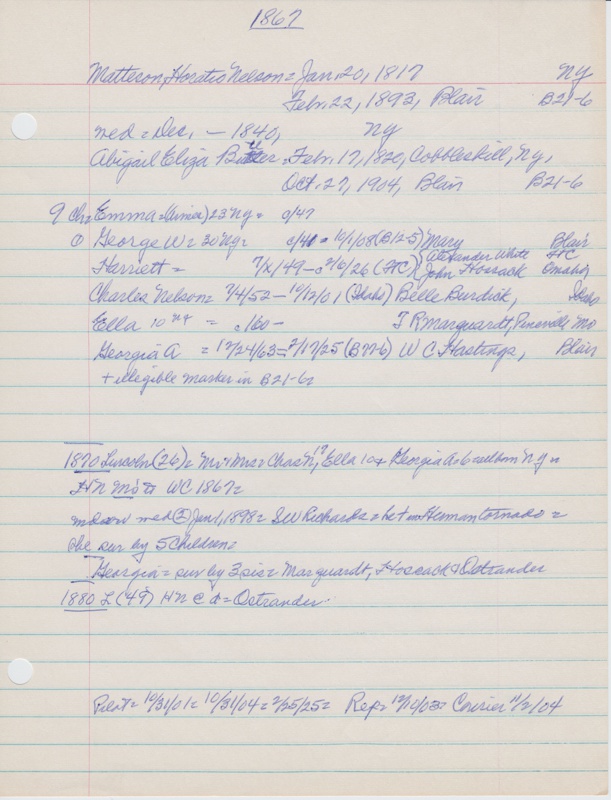 1867
Matteson, Horatio Nelson = Jan. 20, 1817 NY
Febr. 22, 1893, Blair B21-6
med = Dec. - 1840, NY
Abigail Eliza = Febr. 17, 1820, Cobbleskill, Ny,
Oct. 27, 1904, Blair B21-6
9 Ch = Emma = (Aimira) 23 Ny = c/47
George W = 30 Ny = - 10/1/08 (B12-5) Mary Blair
Harriett = 7/x/49 - 2/6/26 (FC) { Alexander White FC
John Hossack Omaha
Charles Nelson = 7/4/52 - 10/12/01 (Idaho) Belle Burdick, Idaho
Ella 10 NY = c/60 - T R Marquardt, Pineville Mo
Georgia A = 12/24/63 = 2/17/25 (B77-6) W C Hastings, Blair
+ illegible marker in B21-6 =
1870 Lincoln (26) = Mr + Mrs = Chas N 19, Ella 10 + Georgia A = 6 = all born Ny =
HN WC 1867 =
med (2) Jan 1, 1898 = S W Richards = in Herman tornado =
she sur by 5 children =
Georgia = sur by 3 sis = Marquardt, Hossack + Ostrander
1880 L (49) HN C A = Ostrander
Pilot = 10/31/01 = 10/31/04 = 2/25/25 = Rep = 12/10/03 = Courier 11/2/04